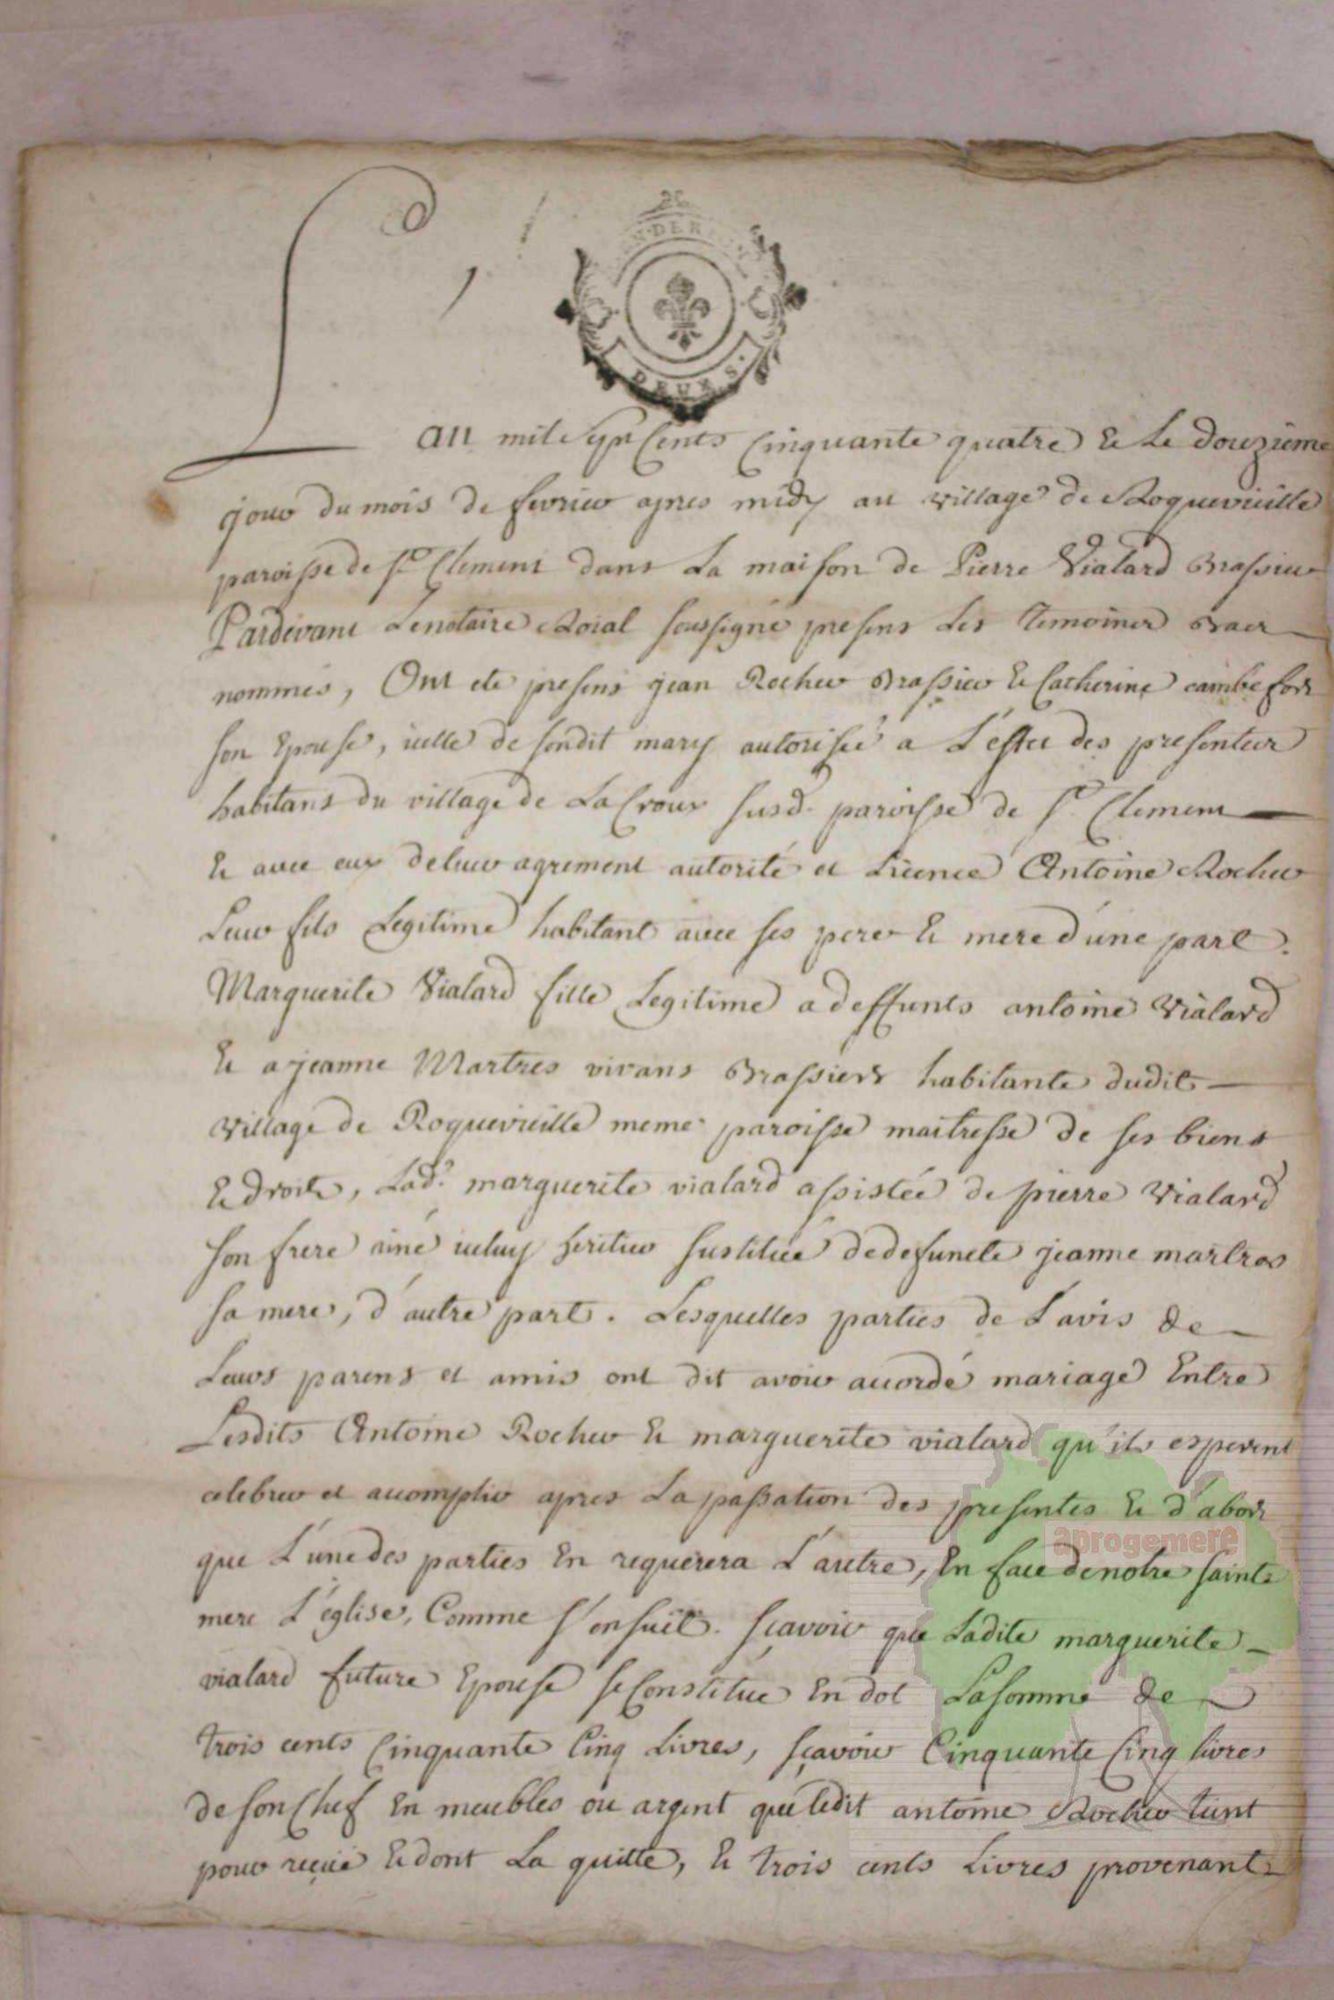 DEUX S.
L'an mil sept Cents Cinquante quatre & Le douzieme
jour du mois de fevrier apres midy au village de Roquevieille
paroisse de St. Clement dans La maison de Pierre Vialard Brassier
Pardevant Lenotaire Roial soussigné presens Les temoines bas
nommés, Ont eté presens jean Rocher Brassier & Catherine cambefort
son Epouse, icelle de sondit mary autorisée a L'effet des presentes
habitans du village de La Croux susd. paroisse de St. Clement
& avec eux deleur agrement autorité et Licence Antoine Rocher
Leur fils Legitime habitant avec ses pere & mere d'une part.
Marguerite Vialard fille Legitime a deffunts antoine Vialard
& a jeanne Martres vivans Brassiers habitante dudit
village de Roquevieille meme paroisse maitresse de ses biens
& droits, Lad. marguerite vialard assistée de pierre Vialard
son frere ainé icluy heritier sustitué dedefuncte jeanne martres
sa mere, d'autre part. Lesquelles parties de L'avis de
Leurs parens et amis ont dit avoir acordé mariage Entre
Lesdits Antoine Rocher & marguerite vialard qu'ils esperent
celebrer et acomplir apres La passation des presentes & d'abord
que L'une des parties En requerera L'autre, En face denotre sainte
mere L'église, Comme s'ensuit. Sçavoir que Ladite marguerite
vialard future Epouse se Constitue En dot Lasomme de
trois cents Cinquante Cinq Livres, sçavoir Cinquante Cinq livres
de son Chef En meubles ou argent que ledit antoine Rocher tient
pour reçüe & dont La quitte, & trois cents Livres provenant
aprogemere